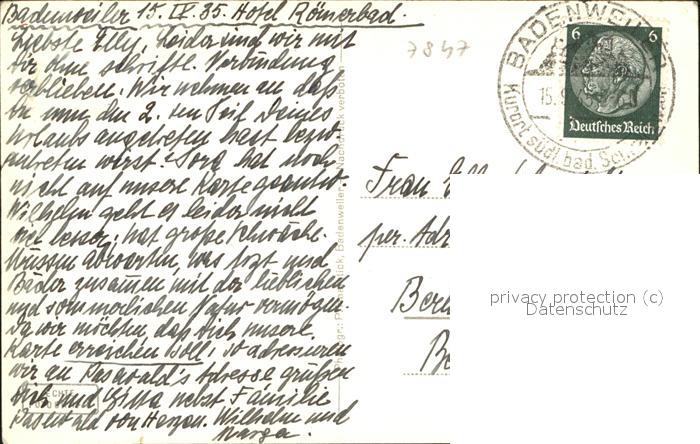 Badenweiler 15. IX. 35. Hotel Römerbad.
Liebste Elly, Leider sind wir mit
dir ohne schriftl. Verbindung
verblieben. Wir nehmen an daß
du nun den 2. ten Teil Deines
Urlaubs angetreten hast bezw.
antreten wirst. hat noch
nicht auf unsere Karte geantw.
Wilhelm geht es leider nicht
viel besser, hat große Schwäche.
Müssen abwarten, was Arzt und
Bäder zusammen mit der lieblichen
und sommerlichen Natur vermögen.
Da wir möchten daß dich unsere
Karte erreichen soll, so adressieren
wir an Adresse grüßen
Dich und Gitta nebst Familie
von Herzen. Wilhelm und
Marga.
7847
BADENWEILER
15.
Kurort südl. bad. Sch
6 6
Deutsches Reich
ECHTE
FOTO
Badenweiler Nachdruck verboten
Frau
per. Adr
Ber
privacy protection (c)
Datenschutz